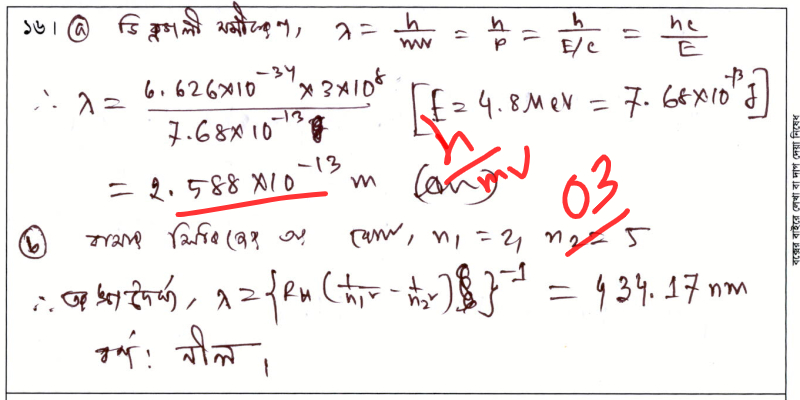 ১৬। ⓐ ডি ব্রগলী সমীকরণে, λ = h/mv = h/p = h/E/c = hc/E
∴ λ = 6.626×10^-34 × 3×10^8 / 7.68×10^-13 [E = 4.8 MeV = 7.68×10^-13 J]
= 2.588×10^-13 m (Ans) h/mv
03
ⓑ বামার সিরিজের n₁ = 2, n₂ = 5
∴ তরঙ্গদৈর্ঘ্য, λ = {R_H (1/n₁² - 1/n₂²)}^-1 = 434.17 nm
বর্ণ: নীল।
বক্সের বাইরে লেখা বা দাগ দেয়া নিষেধ